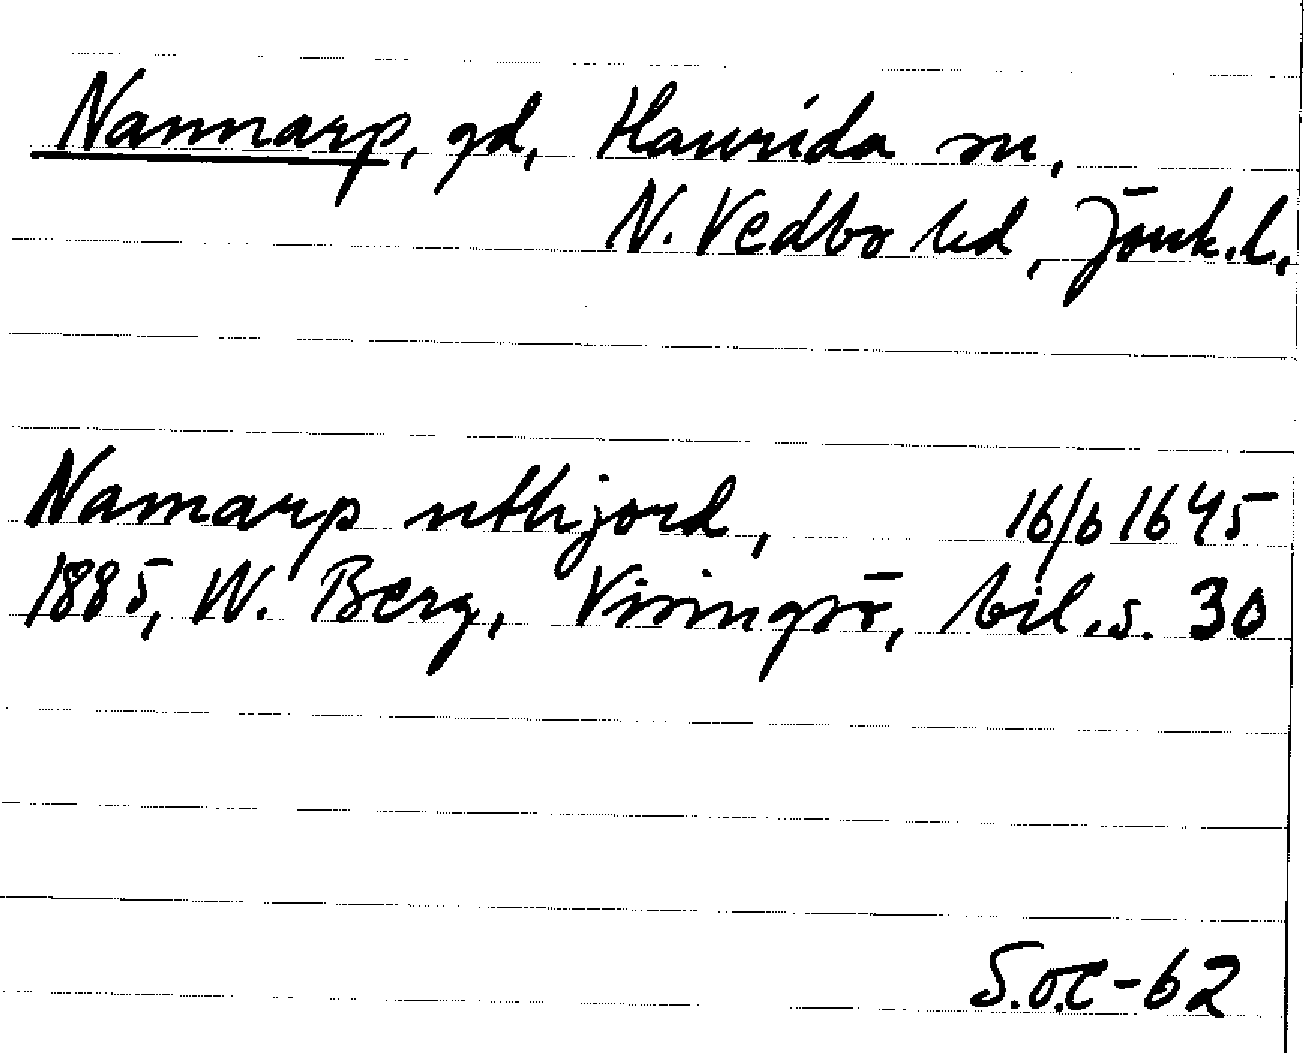 Nannarp, gd, Haurida sn,
N. Vedbo hd, Jönk. l.
Namarp uthjord, 16/6 1645
1885, W. Berg, Visingsö, bil. s. 30
S.O.C-62